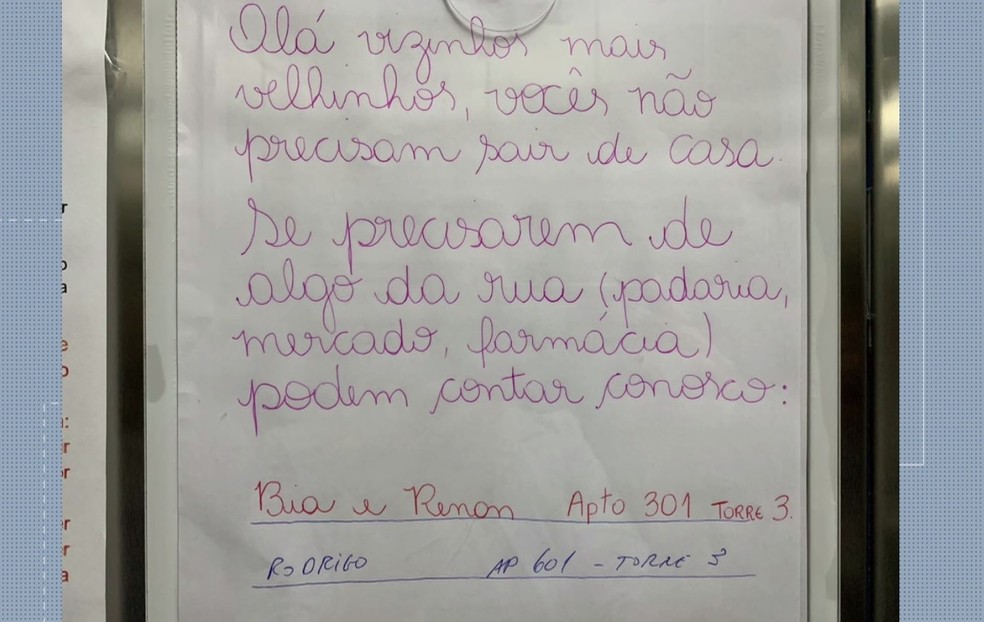 Olá vizinhos mais
velhinhos, vocês não
precisam sair de casa.
Se precisarem de
algo da rua (padaria,
mercado, farmácia)
podem contar conosco:
Bia e Renan Apto 301 TORRE 3.
RODRIGO AP 601 - TORRE 3